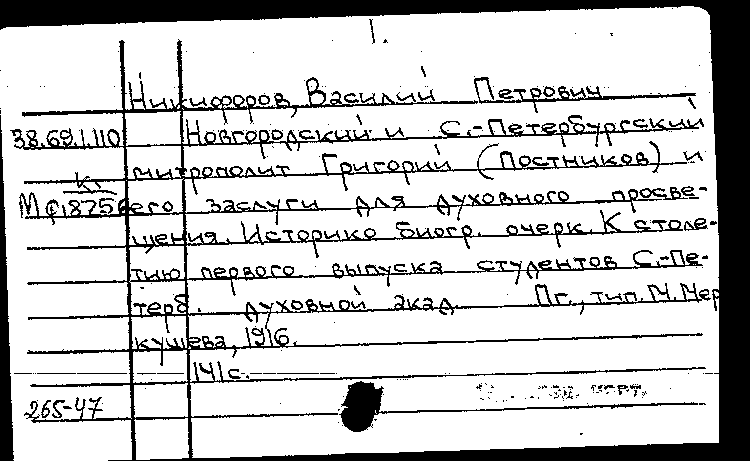 1.
Никифоров, Василий Петрович
38.69.1.110 Новгородский и С.-Петербургский
митрополит Григорий (Постников) и
К
Мф18756 его заслуги для духовного просве-
щения. Историко биогр. очерк. К столе-
тию первого выпуска студентов С.-Пе-
терб. духовной акад. Пг., тип. М. Мер
кушева, 1916.
141 с.
265-47